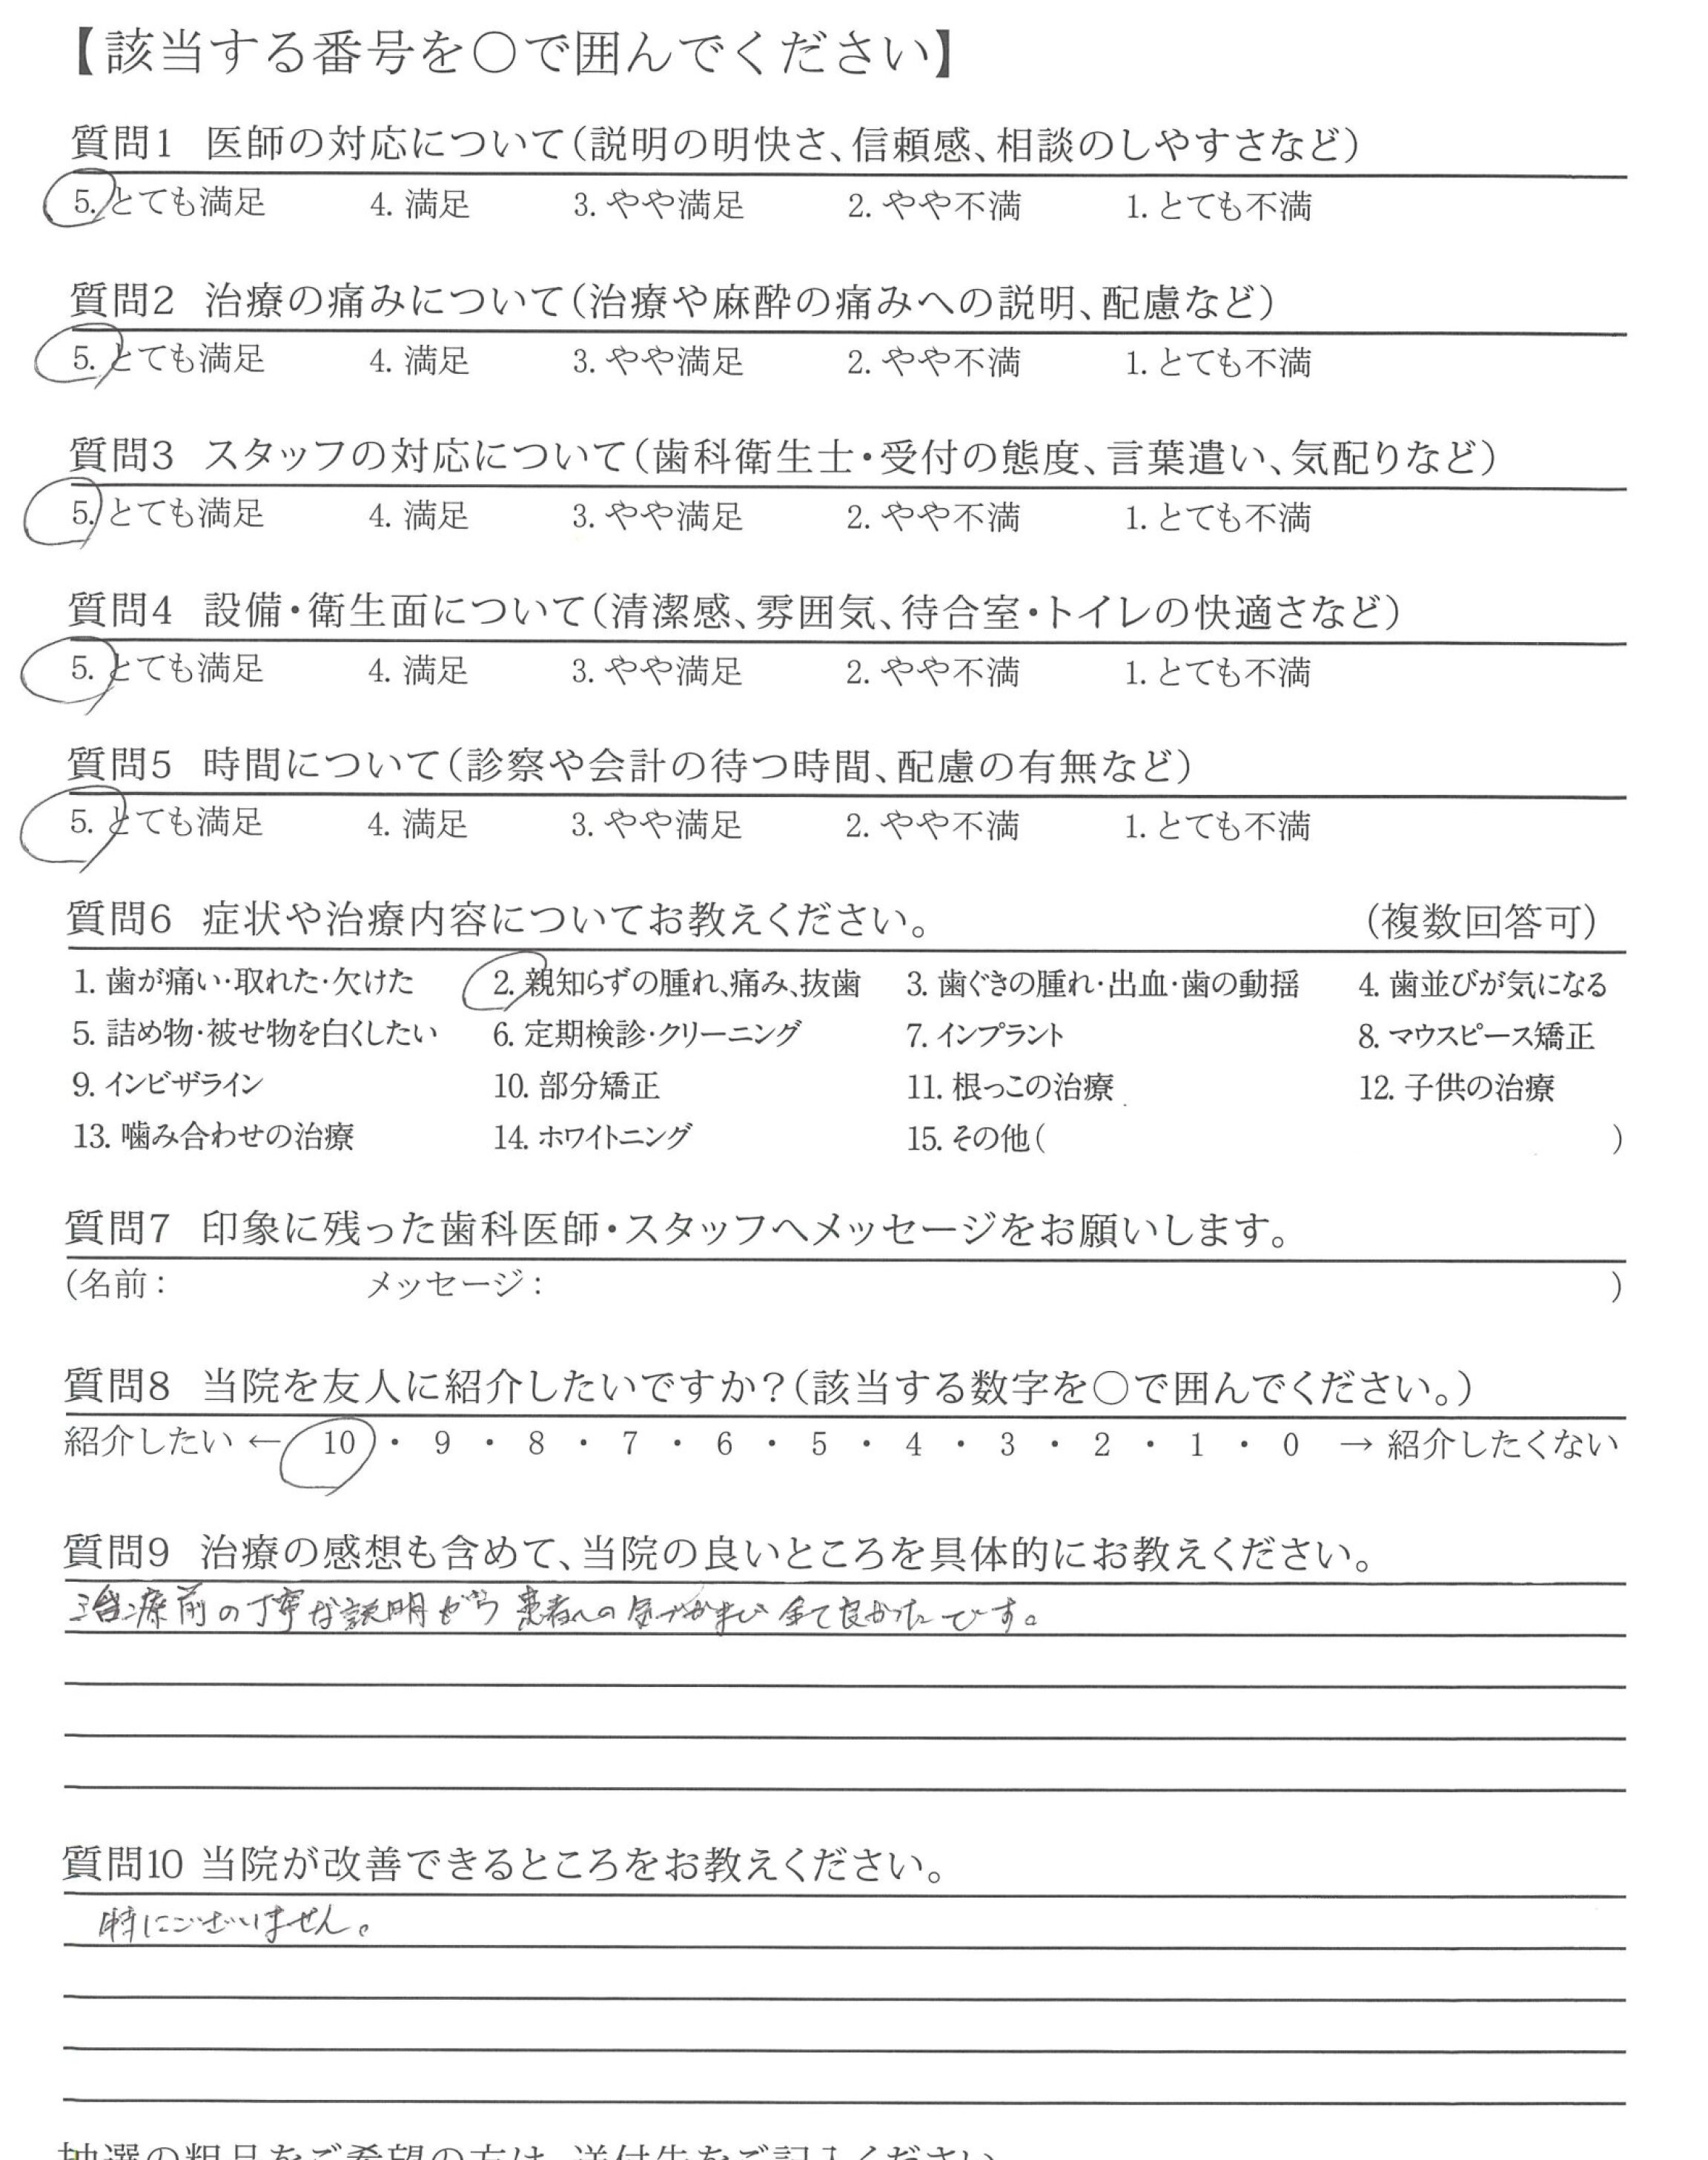 【該当する番号を〇で囲んでください】
質問1 医師の対応について(説明の明快さ、信頼感、相談のしやすさなど)
5. とても満足 4. 満足 3. やや満足 2. やや不満 1. とても不満
質問2 治療の痛みについて(治療や麻酔の痛みへの説明、配慮など)
5. とても満足 4. 満足 3. やや満足 2. やや不満 1. とても不満
質問3 スタッフの対応について(歯科衛生士・受付の態度、言葉遣い、気配りなど)
5. とても満足 4. 満足 3. やや満足 2. やや不満 1. とても不満
質問4 設備・衛生面について(清潔感、雰囲気、待合室・トイレの快適さなど)
5. とても満足 4. 満足 3. やや満足 2. やや不満 1. とても不満
質問5 時間について(診察や会計の待つ時間、配慮の有無など)
5. とても満足 4. 満足 3. やや満足 2. やや不満 1. とても不満
質問6 症状や治療内容についてお教えください。 (複数回答可)
1. 歯が痛い・取れた・欠けた 2. 親知らずの腫れ、痛み、抜歯 3. 歯ぐきの腫れ・出血・歯の動揺 4. 歯並びが気になる
5. 詰め物・被せ物を白くしたい 6. 定期検診・クリーニング 7. インプラント 8. マウスピース矯正
9. インビザライン 10. 部分矯正 11. 根っこの治療 12. 子供の治療
13. 噛み合わせの治療 14. ホワイトニング 15. その他( )
質問7 印象に残った歯科医師・スタッフへメッセージをお願いします。
(名前: メッセージ: )
質問8 当院を友人に紹介したいですか?(該当する数字を〇で囲んでください。)
紹介したい ← 10 ・ 9 ・ 8 ・ 7 ・ 6 ・ 5 ・ 4 ・ 3 ・ 2 ・ 1 ・ 0 → 紹介したくない
質問9 治療の感想も含めて、当院の良いところを具体的にお教えください。
治療前の丁寧な説明から 患者への気づかまで 全て良かったです。
質問10 当院が改善できるところをお教えください。
特にございません。
抽選の粗品をご希望の方は、送付先をご記入ください